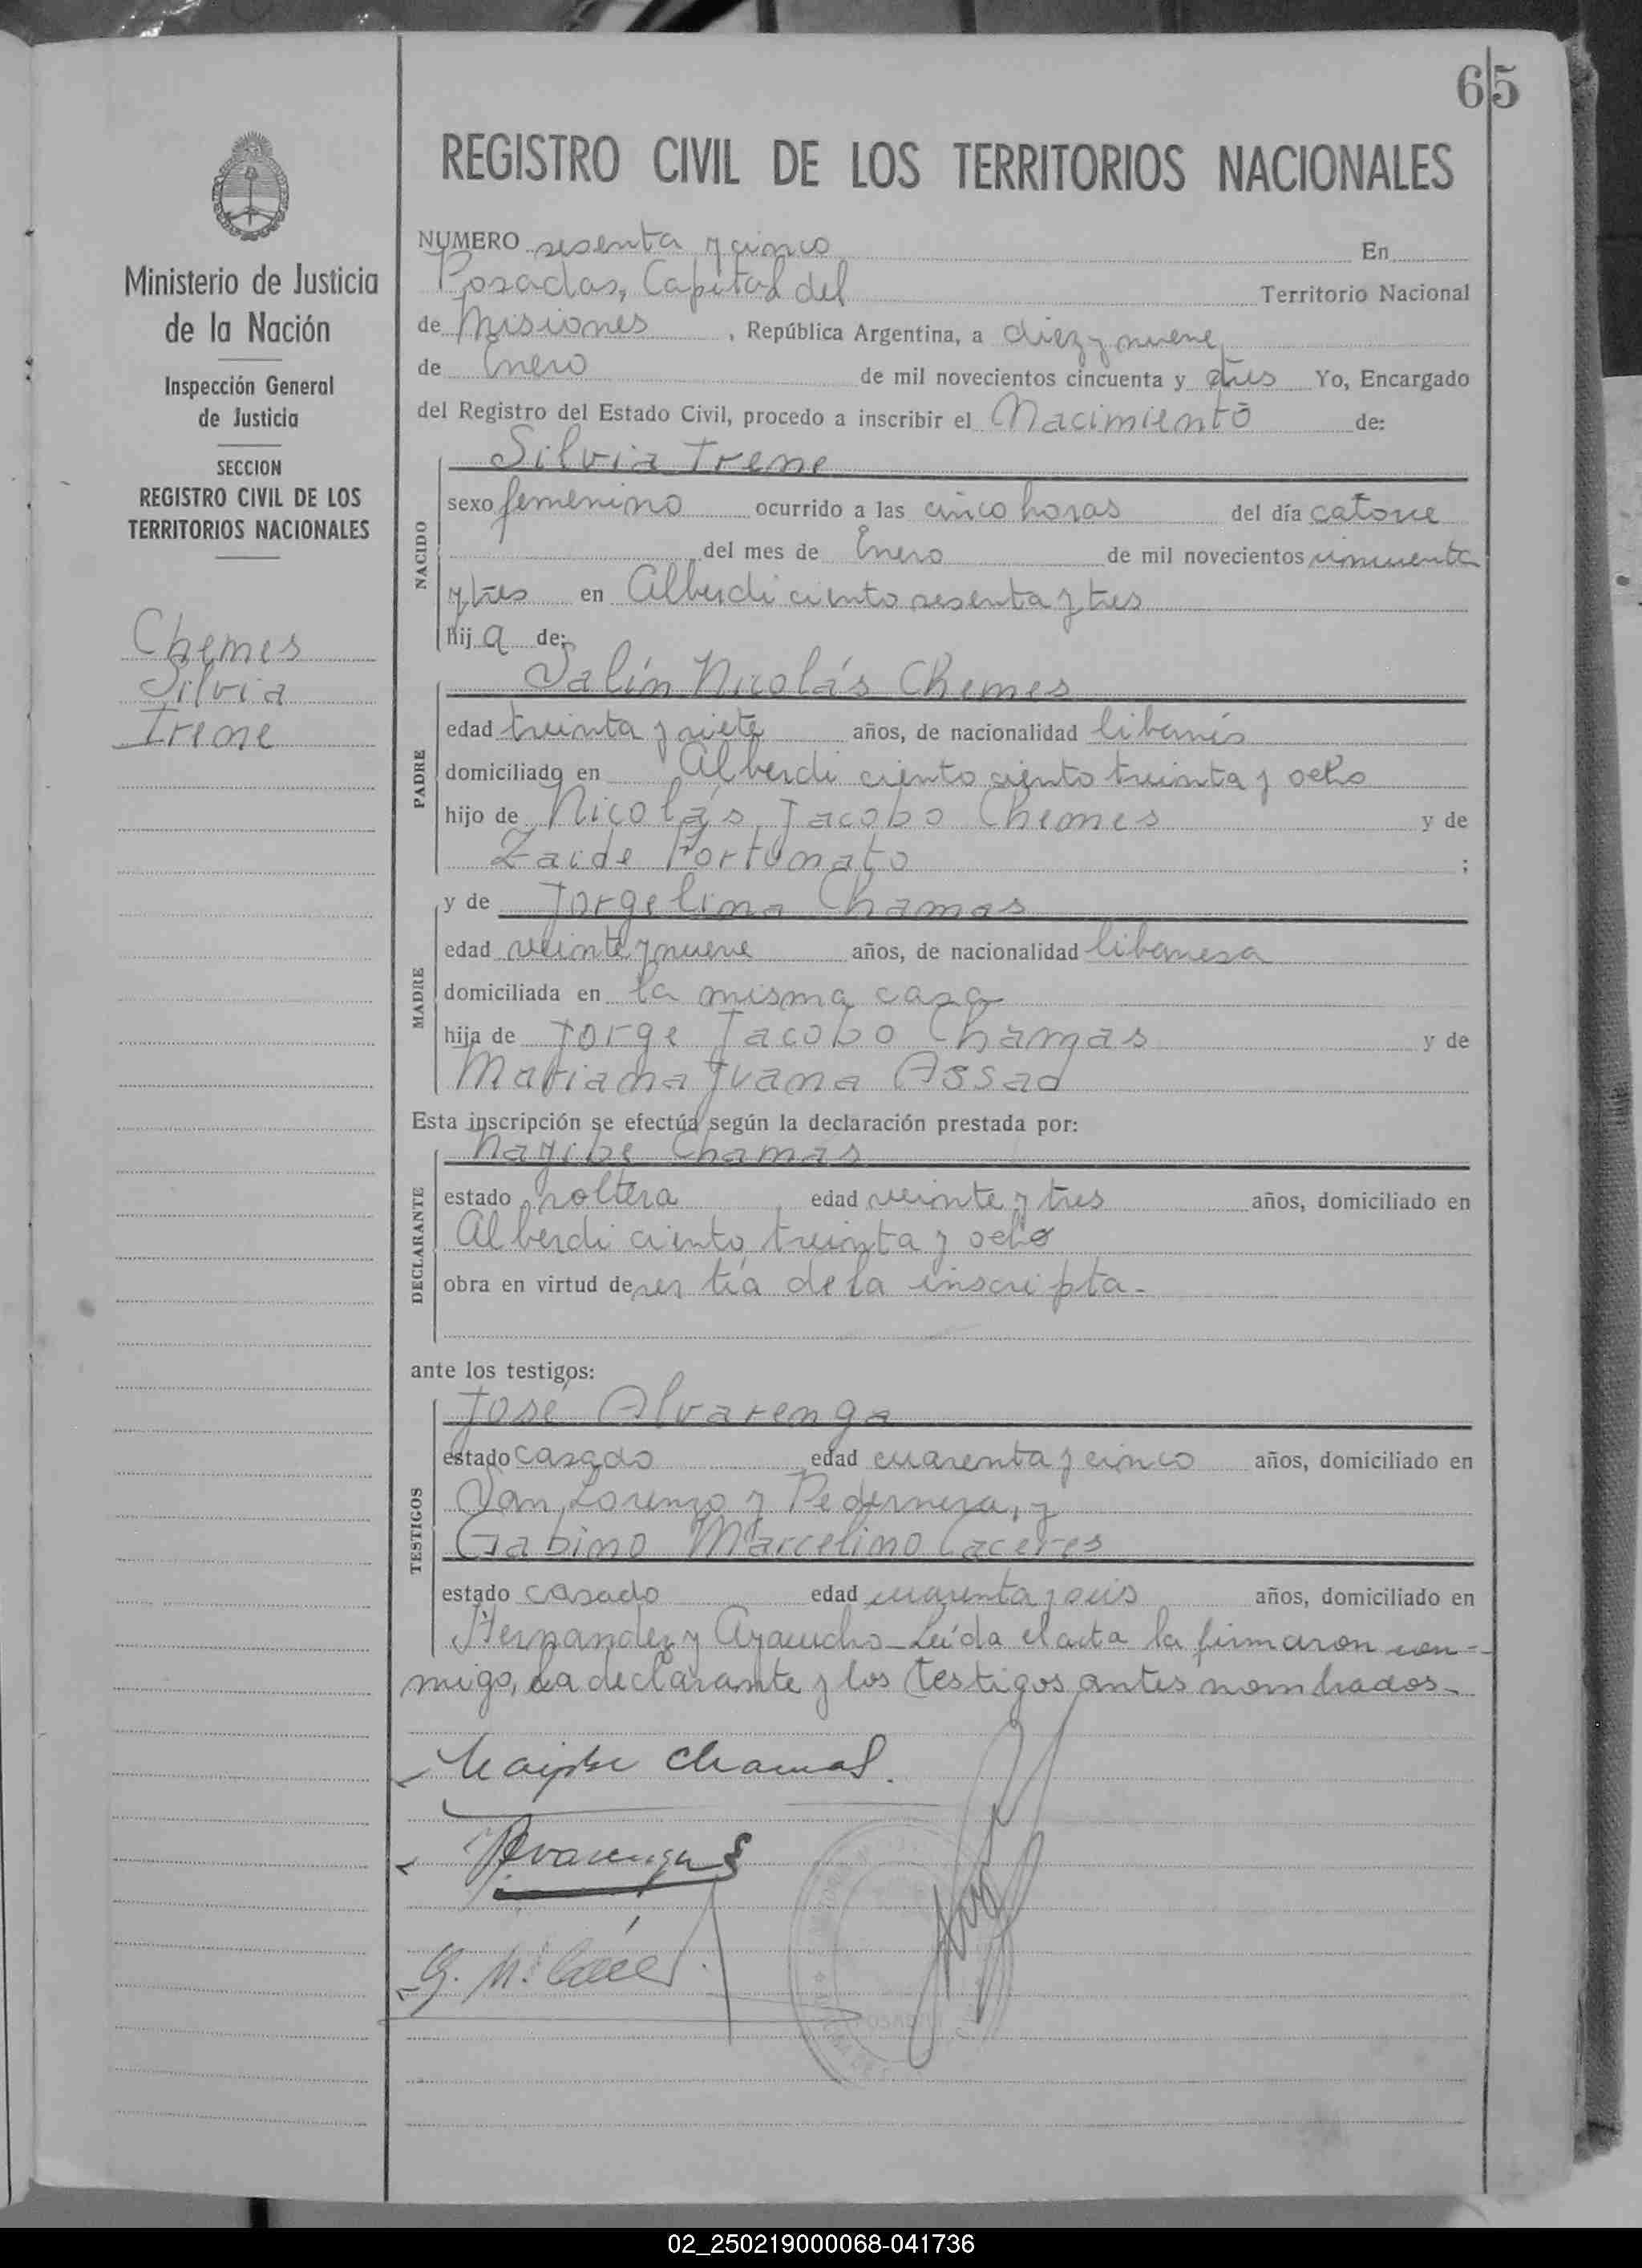 65
REGISTRO CIVIL DE LOS TERRITORIOS NACIONALES
Ministerio de Justicia
de la Nación
Inspección General
de Justicia
SECCION
REGISTRO CIVIL DE LOS
TERRITORIOS NACIONALES
Chemes
Silvia
Irene
NUMERO sesenta y cinco En
Posadas, Capital del Territorio Nacional
de Misiones, República Argentina, a diez y nueve
de Enero de mil novecientos cincuenta y tres Yo, Encargado
del Registro del Estado Civil, procedo a inscribir el Nacimiento de:
Silvia Irene
NACIDO
sexo femenino ocurrido a las cinco horas del día catorce
del mes de Enero de mil novecientos cincuenta
y tres en Alberdi ciento sesenta y tres
hija de:
Salín Nicolás Chemes
PADRE
edad treinta y siete años, de nacionalidad libanés
domiciliado en Alberdi ciento ciento treinta y ocho
hijo de Nicolás Jacobo Chemes y de
Zaide Fortunato ;
y de Jorgelina Chamas
MADRE
edad veinte y nueve años, de nacionalidad libanesa
domiciliada en la misma casa
hija de Jorge Jacobo Chamas y de
Mariana Juana Assad
Esta inscripción se efectúa según la declaración prestada por:
Nayibe Chamas
DECLARANTE
estado soltera edad veinte y tres años, domiciliado en
Alberdi ciento treinta y ocho
obra en virtud de ser tía de la inscripta.
ante los testigos:
José Alvarenga
TESTIGOS
estado casado edad cuarenta y cinco años, domiciliado en
San Lorenzo y Pedernera, y
Gabino Marcelino Caceres
estado casado edad cuarenta y seis años, domiciliado en
Hernandez y Ayacucho - Leída el acta la firmaron con-
migo, la declarante y los testigos antes nombrados-
Nayibe Chamas.
JAlvarenga
G. M. Cáceres
POSADAS
02_250219000068-041736